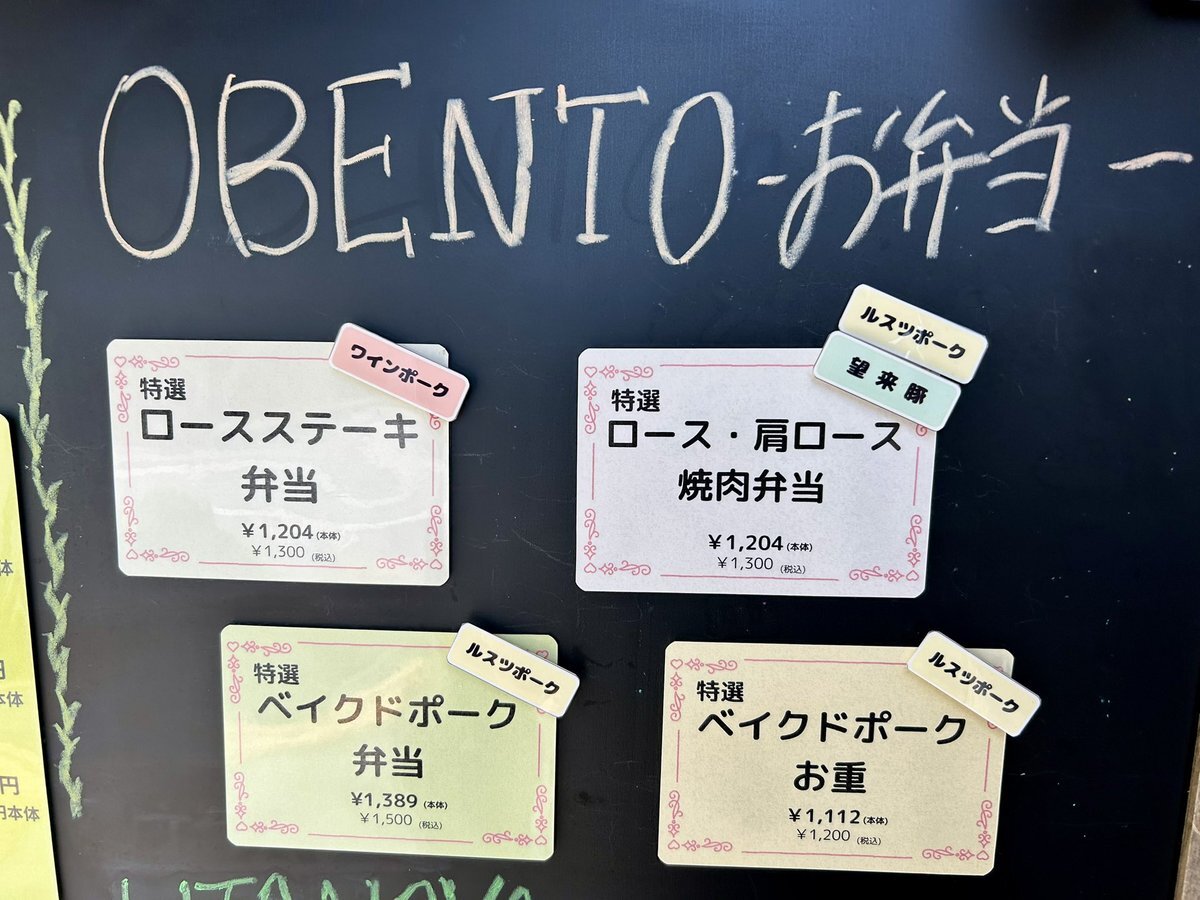 OBENTO-お弁当ー
ワインポーク
特選
ロースステーキ
弁当
¥1,204(本体)
¥1,300(税込)
ルスツポーク
望来豚
特選
ロース・肩ロース
焼肉弁当
¥1,204(本体)
¥1,300(税込)
ルスツポーク
特選
ベイクドポーク
弁当
¥1,389(本体)
¥1,500(税込)
ルスツポーク
特選
ベイクドポーク
お重
¥1,112(本体)
¥1,200(税込)
体
円
本体
円
円本体